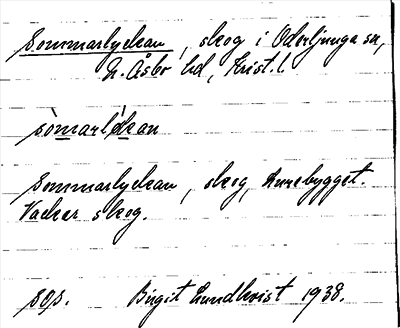 Sommarlyckan, skog i Oderljunga sn,
N. Åsbo hd, Krist. l.
sòmarlýkan
Sommarlyckan, skog, Lurebygget.
Vacker skog.
sgs. Birgit Lundkvist 1938.